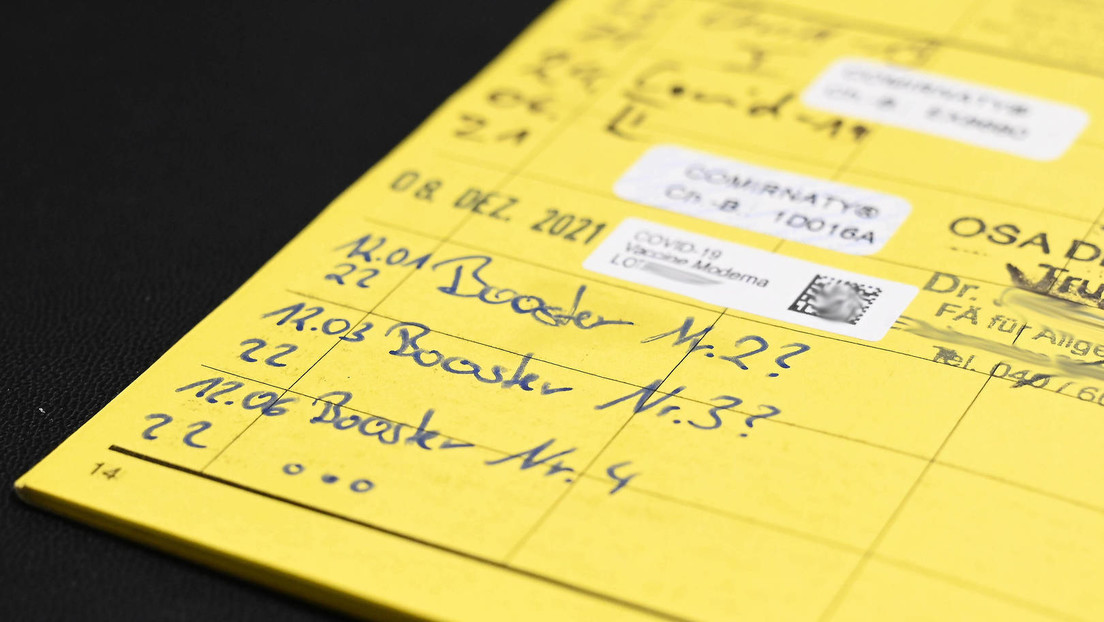 24.
06.
21
Covid-19
COMIRNATY®
Ch.-B.
COMIRNATY®
Ch.-B. 1D016A
08. DEZ. 2021
COVID-19
Vaccine Moderna
LOT
OSA
Dr.
FA für Allge
Tel. 040/
12.01
22
Booster Nr. 2?
12.03
22
Booster Nr. 3?
12.06
22
Booster Nr. 4
...
14